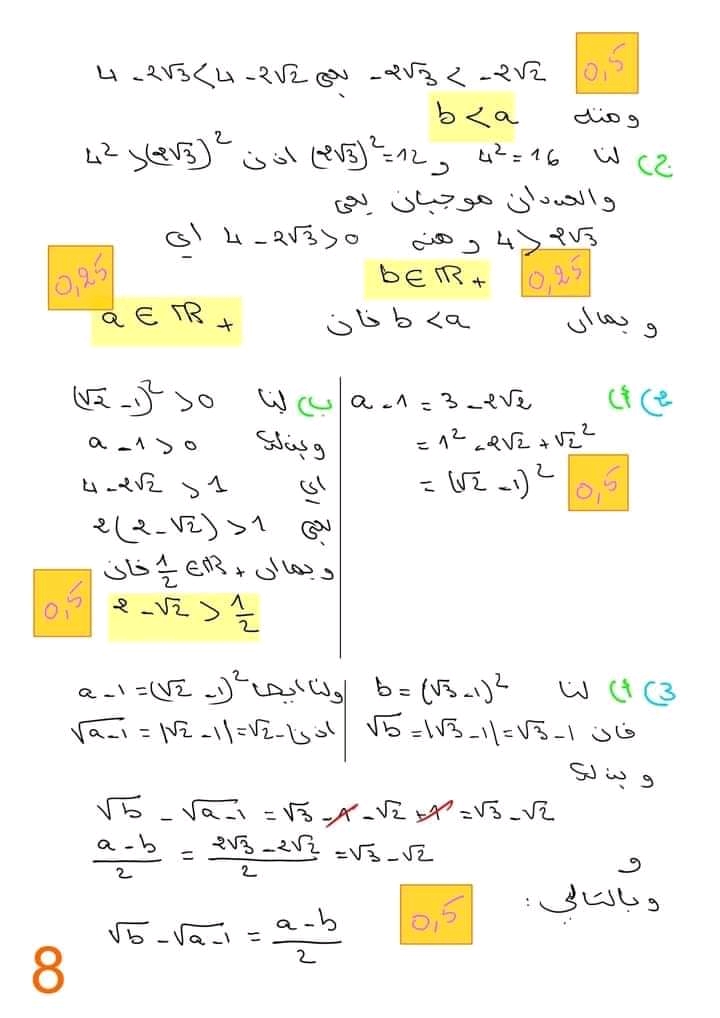 -2√3 < -2√2 يعني 4 - 2√3 < 4 - 2√2
0,5
ومنه b < a
ج) لنا 4² = 16 و (2√3)² = 12 اذن 4² > (2√3)²
والعددان موجبان يعني
4 > 2√3 ومنه 4 - 2√3 > 0 اي
b ∈ ℝ+
0,25
وبما ان b < a فان a ∈ ℝ+
0,25
2) أ) a - 1 = 3 - 2√2
= 1² - 2√2 + √2²
= (√2 - 1)²
0,5
ب) لنا (√2 - 1)² > 0
وبذلك a - 1 > 0
اي 4 - 2√2 > 1
يعني 2(2 - √2) > 1
وبما ان 1/2 ∈ ℝ+ فان
2 - √2 > 1/2
0,5
3) أ) لنا b = (√3 - 1)²
فان √b = |√3 - 1| = √3 - 1
ولنا ايضا a - 1 = (√2 - 1)²
اذن √a-1 = |√2 - 1| = √2 - 1
وبذلك
√b - √a-1 = √3 - 1 - √2 + 1 = √3 - √2
و a - b / 2 = 2√3 - 2√2 / 2 = √3 - √2
وبالتالي :
√b - √a-1 = a - b / 2
0,5
8